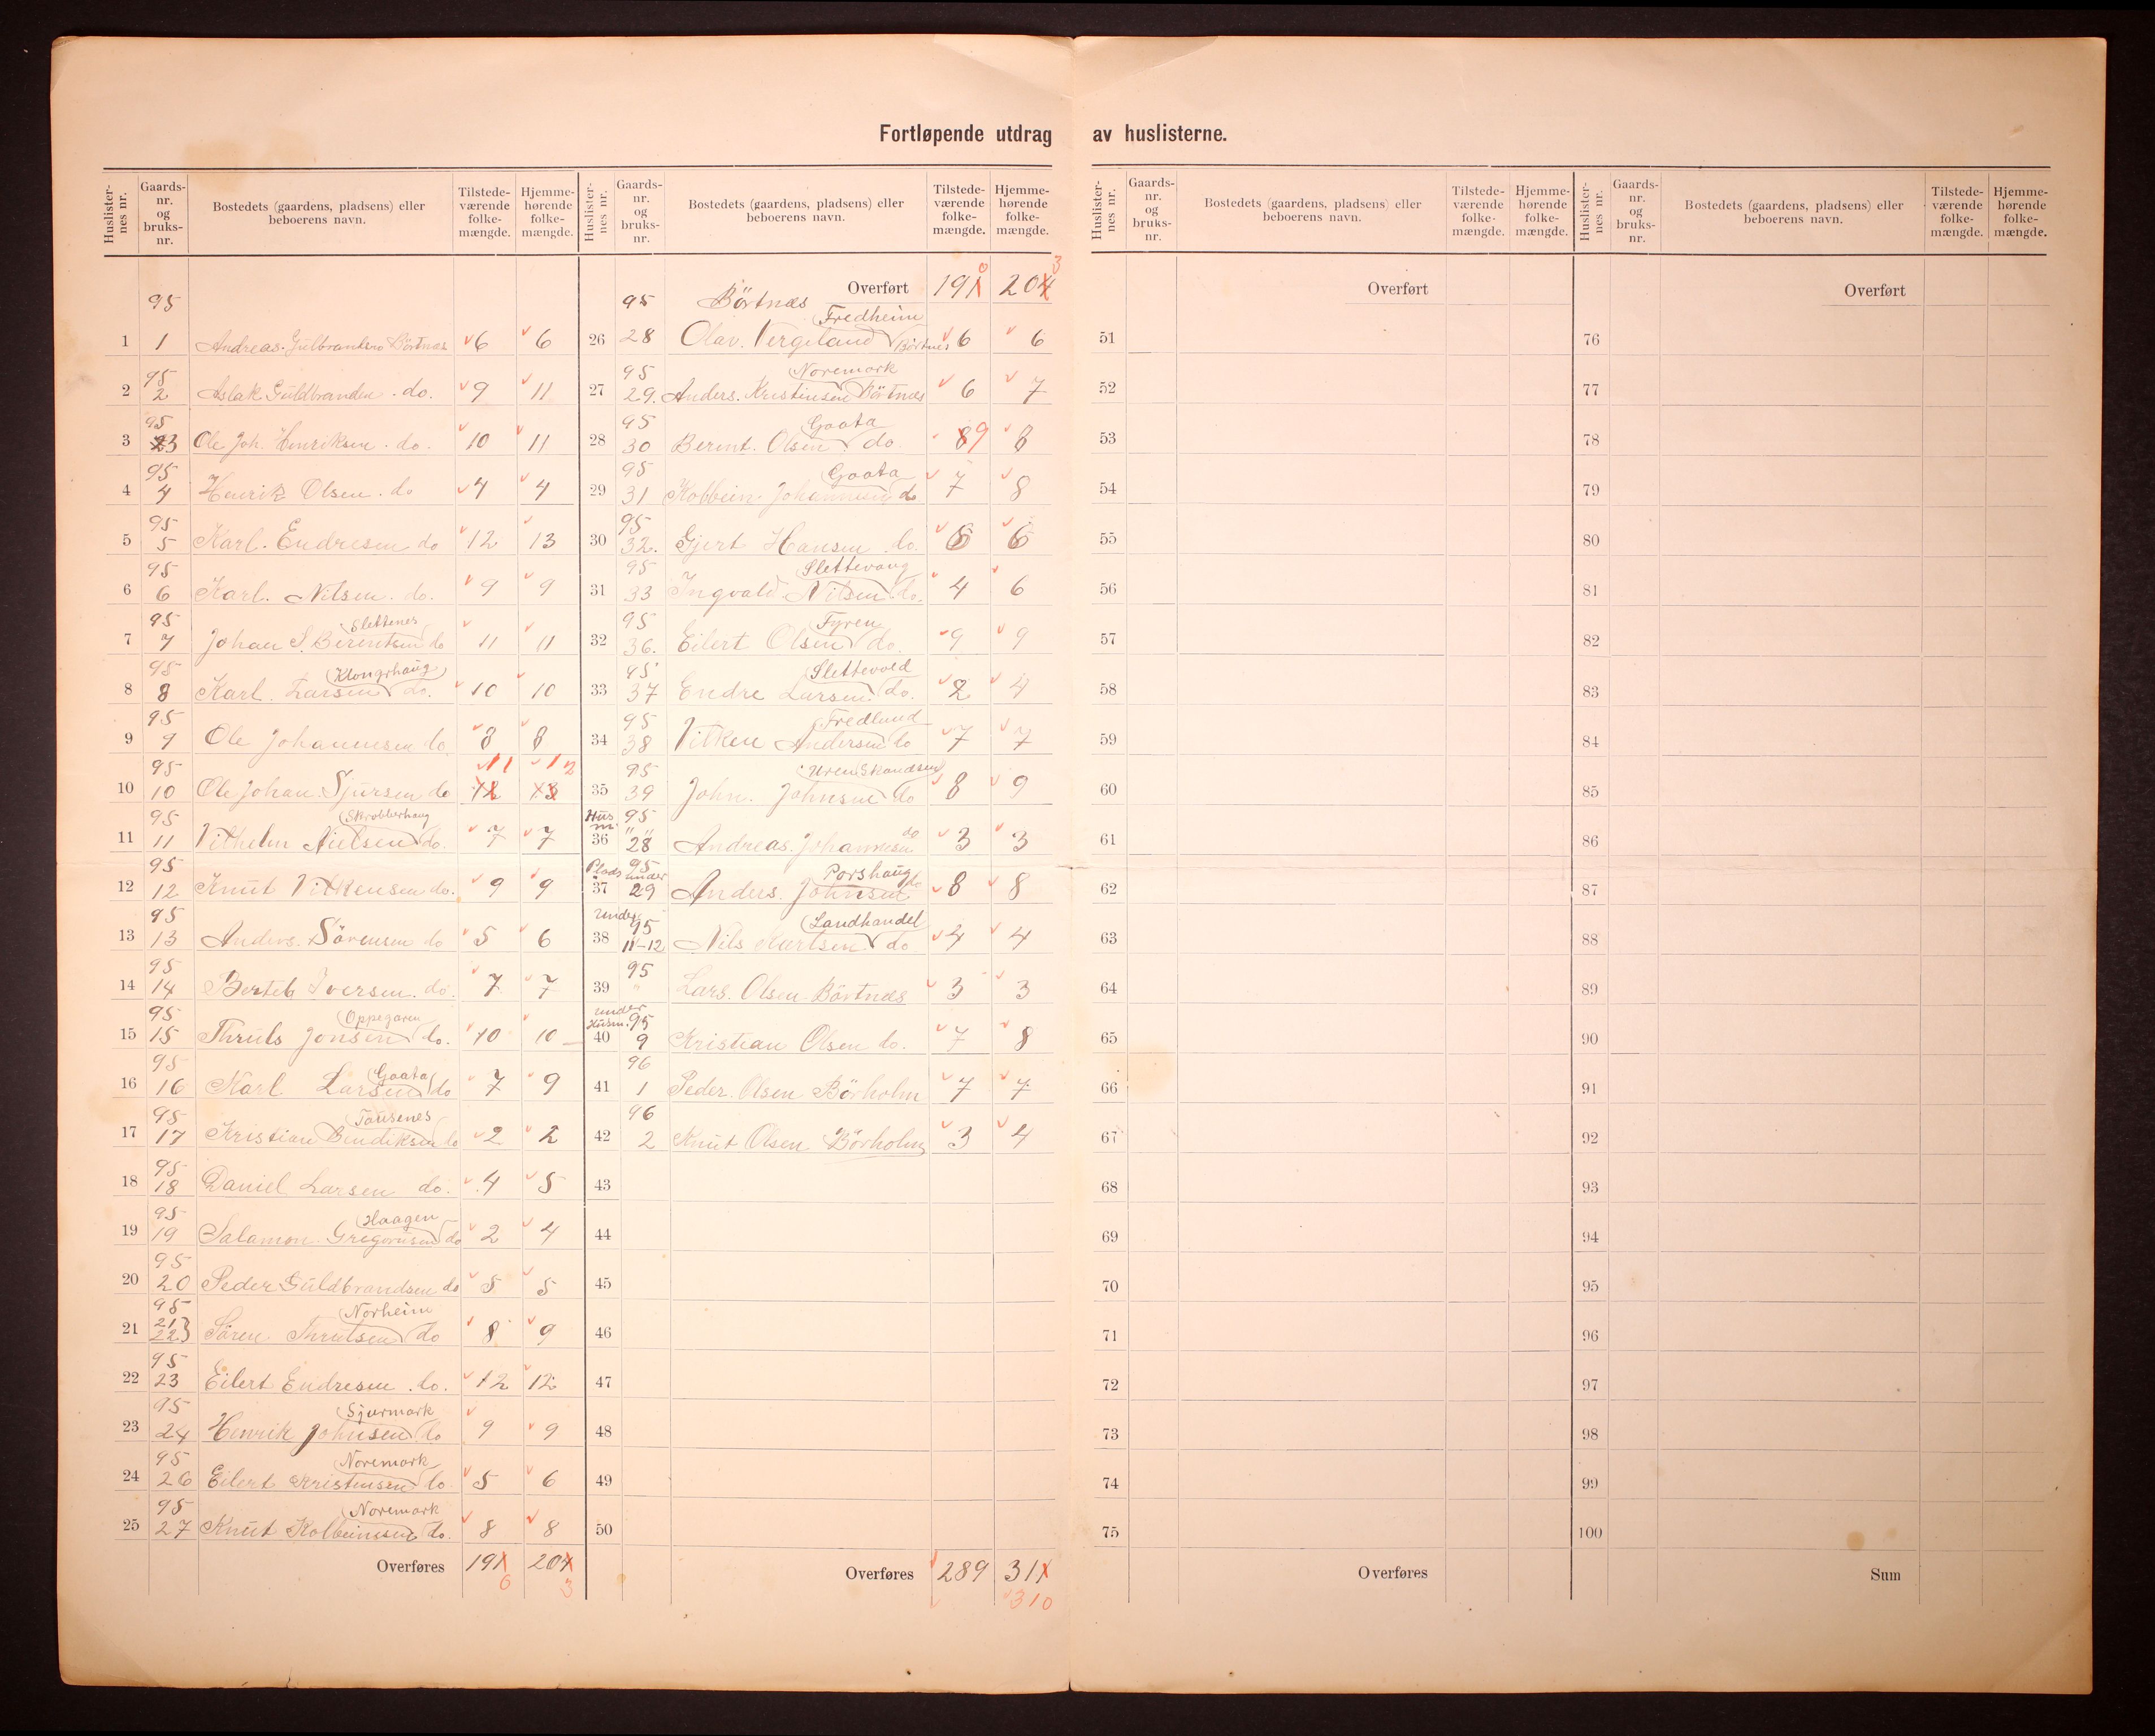 Fortløpende utdrag av huslisterne.
Huslister- nes nr. Gaards- nr. og bruks- nr. Bostedets (gaardens, pladsens) eller beboerens navn. Tilstede- værende folke- mængde. Hjemme- hørende folke- mængde.
95
1 1 Andreas Gulbrandsen Börtnes 6 6
2 95 2 Aslak Guldbrandsen do. 9 11
3 95 3 Ole Joh. Henriksen do. 10 11
4 95 4 Henrik Olsen do 4 4
5 95 5 Karl. Endresen do 12 13
6 95 6 Karl. Nilsen. do. 9 9
7 95 7 Johan S. Berentsen Slettenes do 11 11
8 95 8 Karl Larsen Klongrhaug do. 10 10
9 95 9 Ole Johannesen do 8 8
10 95 10 Ole Johan Sjursen do 11 12
11 95 11 Vilhelm Nielsen Skrobberhaug do. 7 7
12 95 12 Knut Vilkensen do. 9 9
13 95 13 Anders. Sörensen do 5 6
14 95 14 Berteb Iversen. do. 7 7
15 95 15 Thruls Jonsen Oppegaren do. 10 10
16 95 16 Karl Larsen Gaata do 7 9
17 95 17 Kristian Bendiksen Tausenes do 2 2
18 95 18 Daniel Larsen do. 4 5
19 95 19 Salamon Gregoriusen Haagen do 2 4
20 95 20 Peder Guldbrandsen do 5 5
21 95 21 22 } Sören Thrulsen Norheim do 8 9
22 95 23 Eilert Endresen do. 12 12
23 95 24 Henrik Johnsen Sjurmark do 9 9
24 95 26 Eilert Kristensen Noremark do 5 6
25 95 27 Knut Kolbeinssen Noremark do. 8 8
Overføres 191 0 204 3
Huslister- nes nr. Gaards- nr. og bruks- nr. Bostedets (gaardens, pladsens) eller beboerens navn. Tilstede- værende folke- mængde. Hjemme- hørende folke- mængde.
Börtnes Overført 191 0 204 3
26 95 28 Olav. Vergeland Fredheim Börtnes 6 6
27 95 29. Anders. Kristensen Noremark Börtnes 6 7
28 95 30 Berent. Olsen Gaata do 8 9 8
29 95 31 Kolbein Johannesen Gaata do 7 8
30 95 32. Gjert Hansen do. 6 6
31 95 33 Ingvald. Nilsen Slettevaug do. 4 6
32 95 36. Eilert Olsen Fyren do. 9 9
33 95 37 Endre Larsen Slettevold do. 2 4
34 95 38 Vilken Andersen Fredlund do 7 7
35 95 39 John. Johnsen Uren Skandsen do 8 9
Husm. 36 95 " " 28 Andreas. Johannesen do 3 3
Plads under 37 95 29 Anders. Johnsen Porshaug do 8 8
under 38 95 11-12 Nils Karlsen Landhandel do 4 4
39 95 " Lars. Olsen Börtnes 3 3
under Husm. 40 95 9 Kristian Olsen do. 7 8
41 96 1 Peder. Olsen Börholm 7 7
42 96 2 Knut Olsen Börholm 3 4
43
44
45
46
47
48
49
50
Overføres 289 311
310
Huslister- nes nr. Gaards- nr. og bruks- nr. Bostedets (gaardens, pladsens) eller beboerens navn. Tilstede- værende folke- mængde. Hjemme- hørende folke- mængde.
Overført
51
52
53
54
55
56
57
58
59
60
61
62
63
64
65
66
67
68
69
70
71
72
73
74
75
Overføres
Huslister- nes nr. Gaards- nr. og bruks- nr. Bostedets (gaardens, pladsens) eller beboerens navn. Tilstede- værende folke- mængde. Hjemme- hørende folke- mængde.
Overført
76
77
78
79
80
81
82
83
84
85
86
87
88
89
90
91
92
93
94
95
96
97
98
99
100
Sum